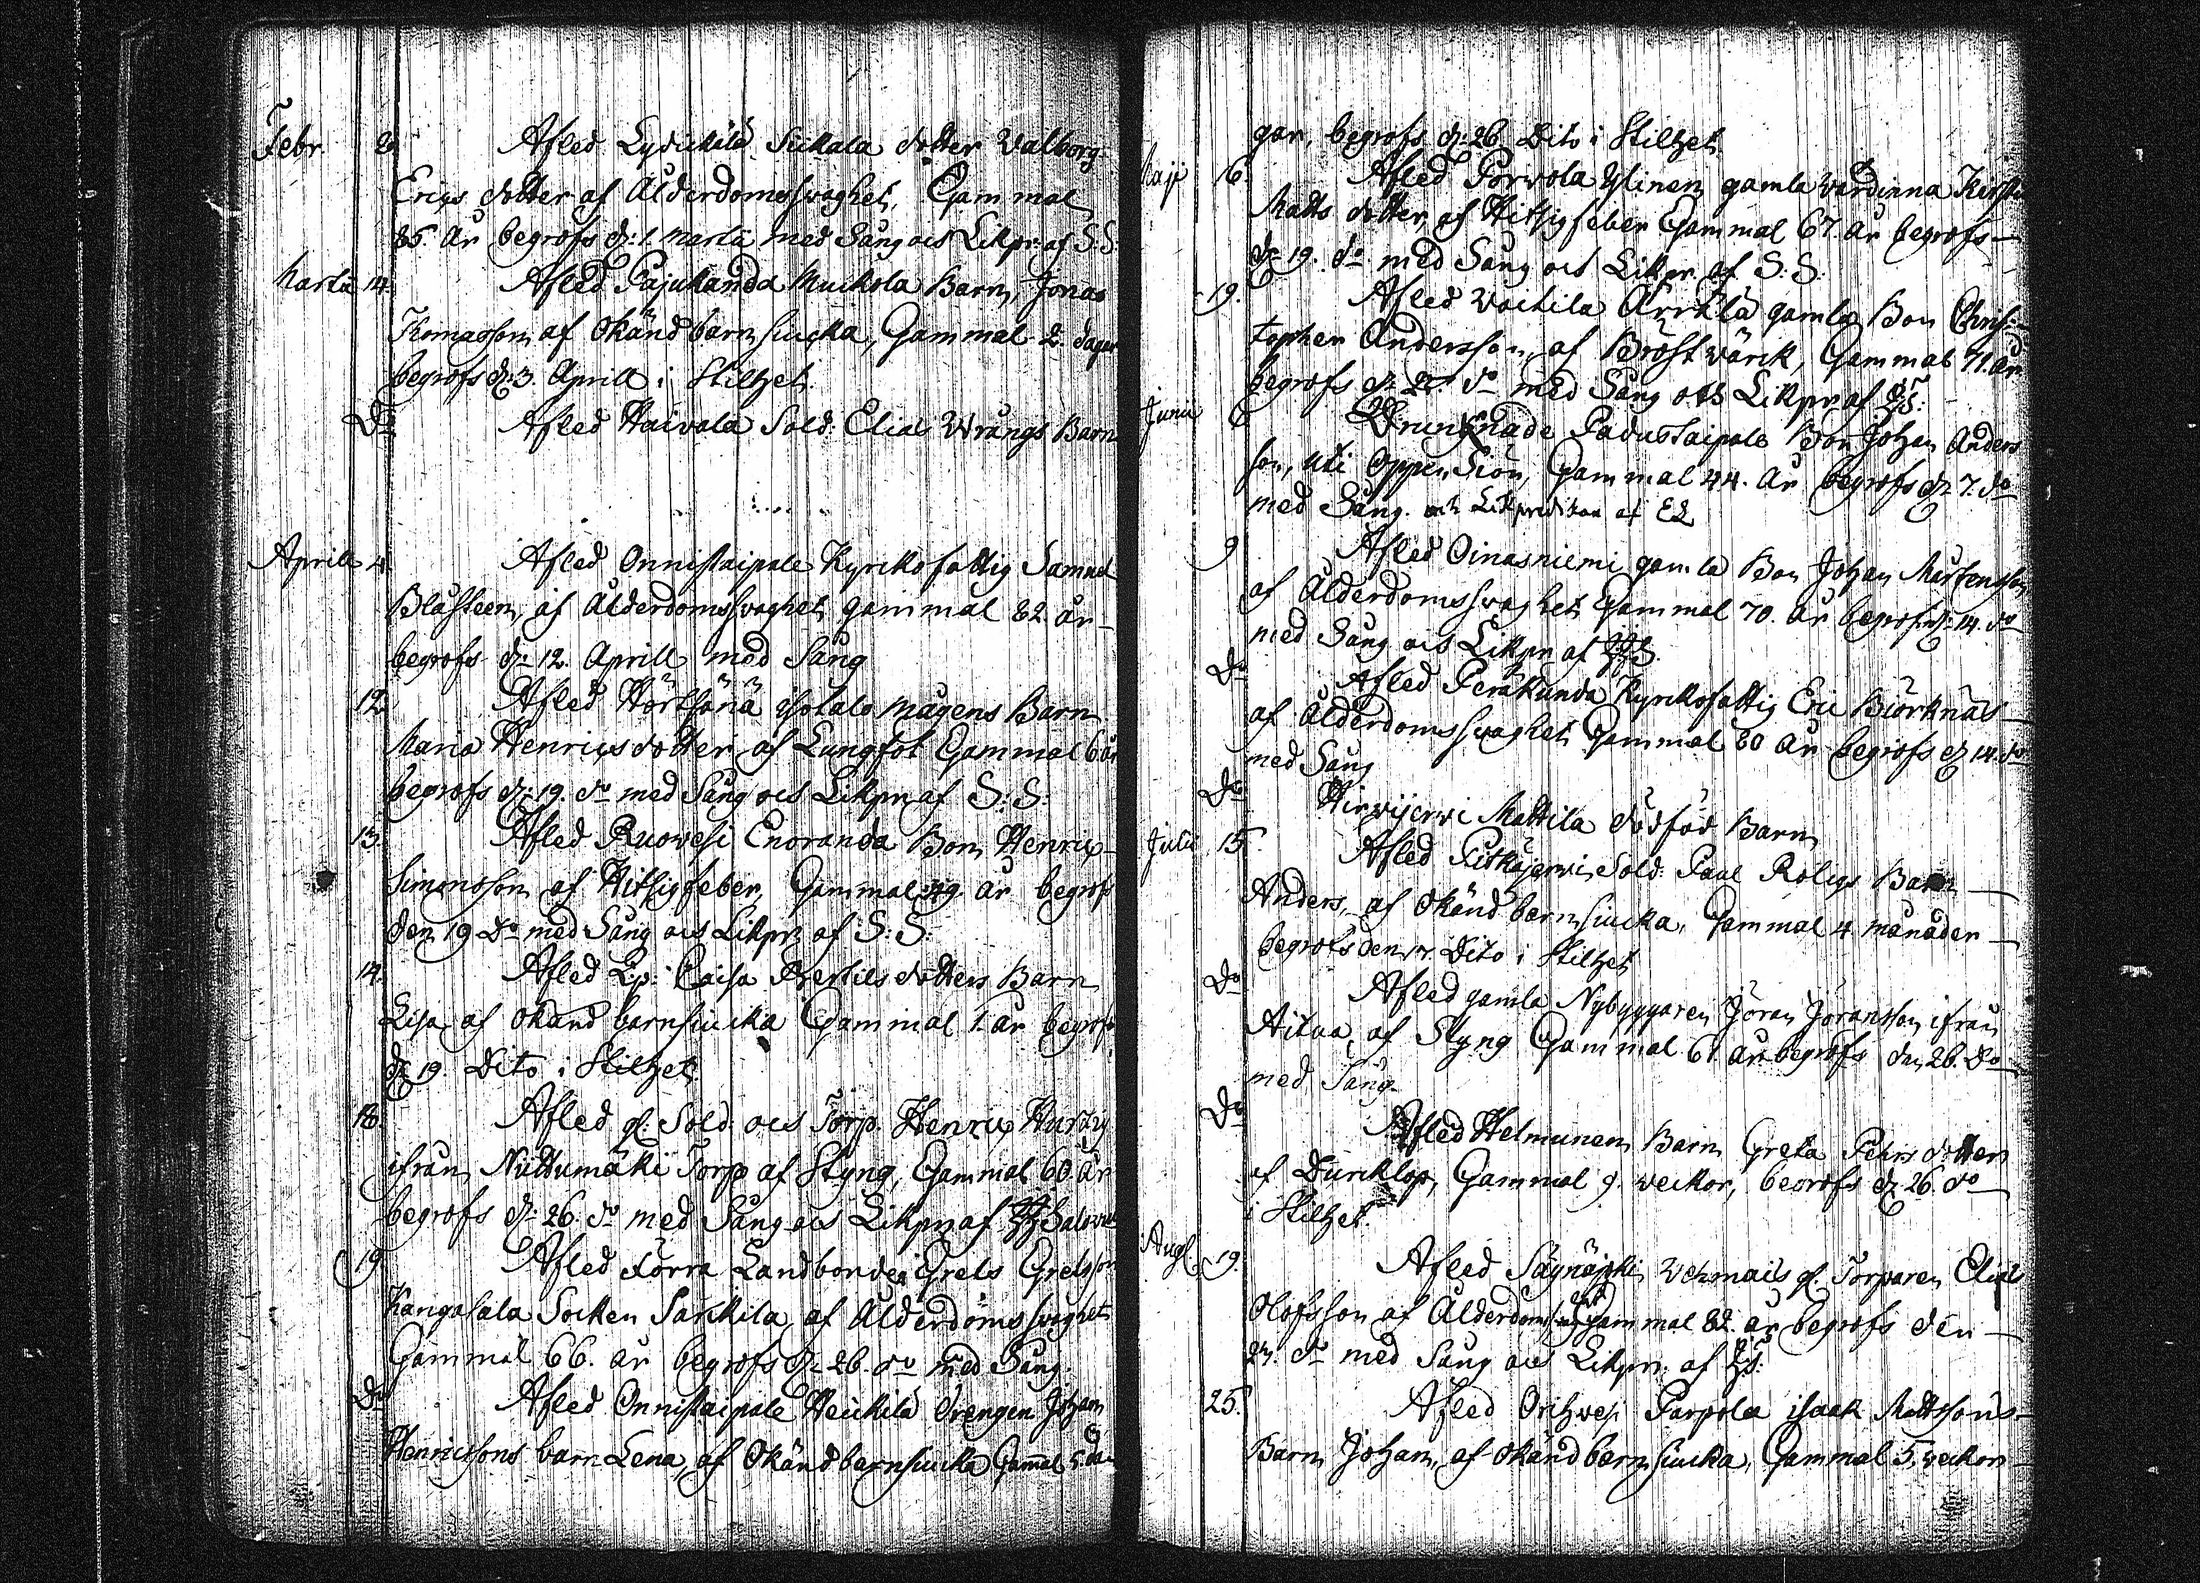 Febr. 2. Afled Lydickälä Sickala dotter Valborg
Erigs dotter af Ålderdomsswaghet, Gammal
85. År begrofs d: 1. Martii med Sång ock Likpr: af S. S.
Martii 14. Afled Pajukanda Muikola Barn, Jonas
Thomasson, af Okänd barnsiucka, Gammal 2. dagar
begrofs d: 3. Aprill i Stilhet.
Do Afled Haivala Sold: Elias Wrångs Barn
Aprill 4. Afled Onnistaipale Kyrckofattig Samuel
Blåsteen, af Ålderdomsswaghet gammal 82. år
begrofs d: 12. Aprill med Sång
12. Afled Hörtsänä Isotalo mågens Barn
Maria Henrigs dotter, af Lungsot Gammal 6 år
begrofs d: 19. do med Sång ock Likpr: af S: S:
13. Afled Ruowesi Enoranda Bon Henrig
Simonsson af Hitsigfeber, Gammal 49. år begrofs
den 19 Do med Sång ock Likpr: af S: S:
14. Afled Caisa Bertils dotters Barn
Lisa, af Okänd barnsiucka Gammal 1. år begrofs
d: 19. Dito i Stilhet.
18. Afled gl: Sold: ock Torp. Henrig Hurtig
ifrån Nuttumäki Torp af Styng, Gammal 60. år
begrofs d: 26. do med Sång ock Likpr: af
19 Afled Förra Landbonden Grels Grelsson
Kangasala Socken Sarckila, af Ålderdomsswaghet
Gammal 66. år begrofs d: 26. do med Sång.
Do Afled Onnistaipale Heickilä drengen Johan
Henricssons barn Lena, af Okänd barnsiucka Gammal 5. da-
gar, begrofs d: 26. Dito i Stilhet
Maji 16. Afled Porvola Ylinen gamla wärdinna Kirstin
Matts dotter, af Hitsigfeber Gammal 67. år begrofs
d: 19. do med Sång ock Likpr: af S: S:
19. Afled Wäckilä Ärrälä gamla Bon Chris-
topher Andersson, af Bröstwärck, Gammal 71. år
begrofs d: do med Sång ock Likpr: af
Junii 6 Drunknade Padustaipale Bon Johan Anders
son, uti Öppen Siön, Gammal 44. år begrofs d: 7. do
med Sång och Likpredikan af EL
9 Afled Oinasniemi gamla Bon Johan Mårtensson
af Ålderdomsswaghet Gammal 70. år begrofs d: 14. do
med Sång ock Likpr: af
Do Afled Peräkunda Kyrckofattig Eric Biörknäs
af Ålderdomsswaghet Gammal 80 år begrofs d: 14. do
med Sång
Do Hirvijervi Mattila dödföd Barn
Julii 15. Afled Pitkäjärvi Sold: Paul Roligs Barn
Anders, af Okänd barnsiucka, Gammal 4 månader
begrofs den 17. Dito i Stilhet
Do Afled gamla Nybyggaren Jöran Jöransson ifrån
Aitaa, af Styng Gammal 61. år begrofs den 26. Do
med Sång.
Do Afled Helmunen Barn Greta Pehrs dotter
af Durcklop, Gammal 9. weckor, begrofs d: 26. do
i Stilhet.
Aug: 19. Afled Säynäjoki Wehmais gl: Torparen Elias
Olofsson af Ålderdomswaghet Gammal 82. år begrofs den
23. do med Sång ock Likpr: af
25. Afled Orihwesi Parpola Isaak Mattssons
Barn Johan, af okänd barnsiucka, Gammal 5. weckor